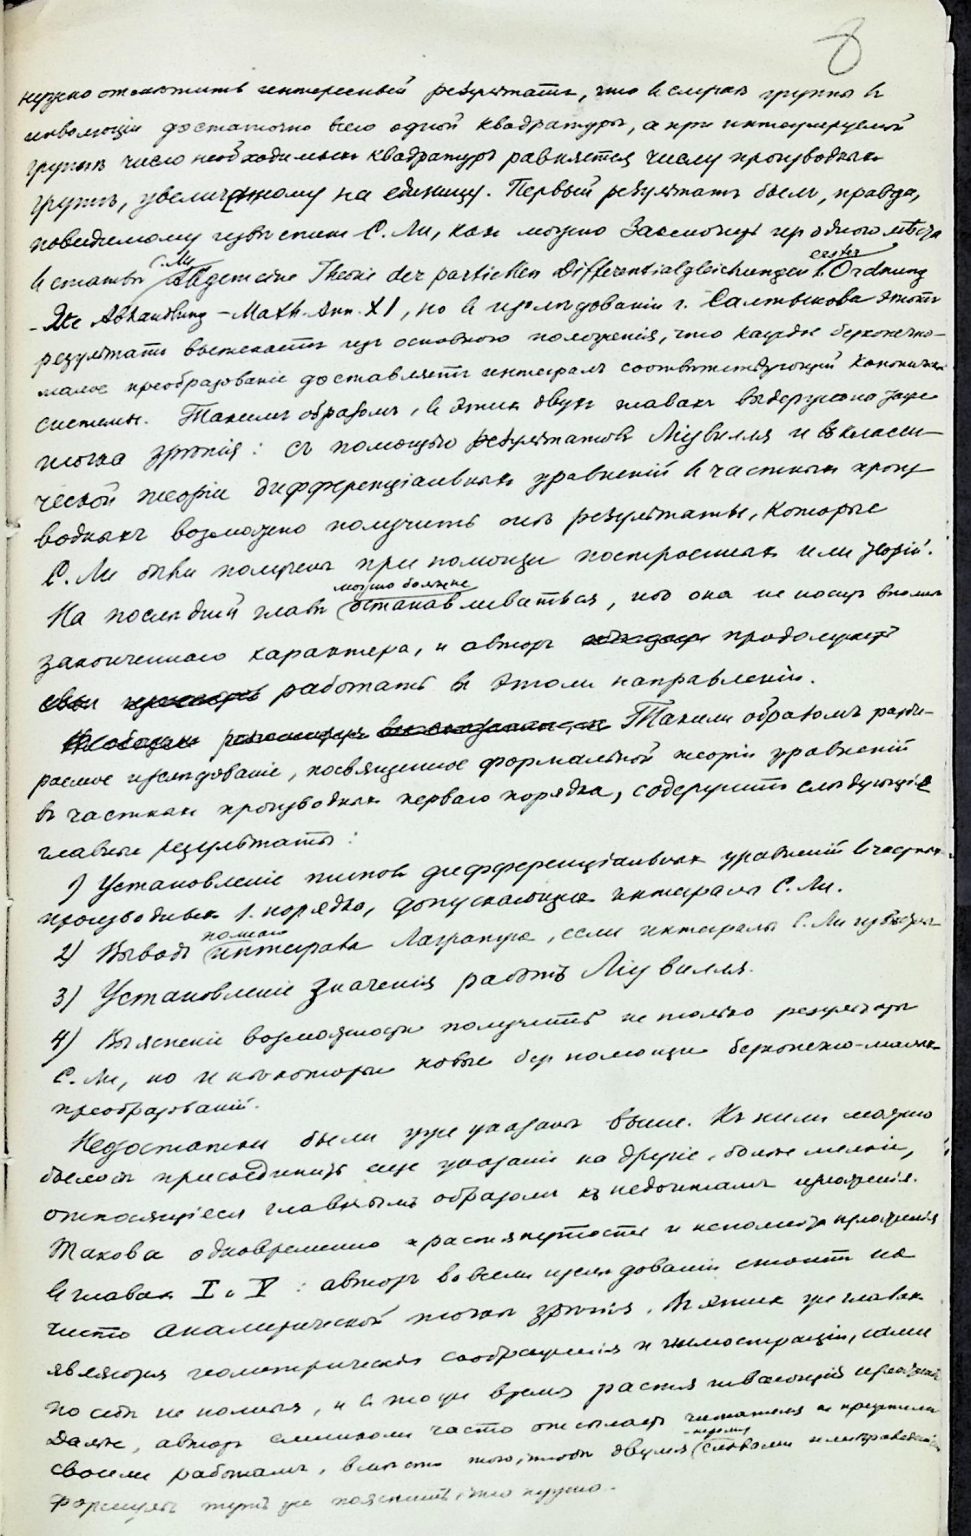 8
нужно отметить интересный результатъ, что въ случаѣ группы въ
инволюціи достаточно всего одной квадратуры, а при интегрируемой
группѣ число необходимыхъ квадратуръ равняется числу производныхъ
группъ, увеличенному на единицу. Первый результатъ былъ, правда,
повидимому извѣстенъ С. Ли, какъ можно заключить изъ одного мѣста
въ статьѣ С. Ли Allgemeine Theorie der partiellen Differentialgleichungen erster Ordnung
- 2te Abhandlung - Math. Ann. XI, но въ изслѣдованіи г. Салтыкова этотъ
результатъ вытекаетъ изъ основного положенія, что каждое безконечно-
малое преобразованіе доставляетъ интегралъ соотвѣтствующей канонич.
системы. Такимъ образомъ, въ этихъ двухъ главахъ выдержана
точка зрѣнія: съ помощью результатовъ Ліувилля и класси-
ческой теоріи дифференціальныхъ уравненій въ частныхъ произ
водныхъ возможно получить тѣ результаты, которые
С. Ли получилъ при помощи построенныхъ имъ теорій.
На послѣдней главѣ можно болѣе не останавливаться, ибо она не носитъ вполнѣ
законченнаго характера, и авторъ продолжаетъ
работать въ этомъ направленіи.
Такимъ образомъ разби-
раемое изслѣдованіе, посвященное формальной теоріи уравненій
въ частныхъ производныхъ перваго порядка, содержитъ слѣдующіе
главные результаты:
1) Установленіе типовъ дифференціальныхъ уравненій въ частныхъ
производныхъ 1. порядка, допускающихъ интегралъ С. Ли.
2) Выводъ полнаго интеграла Лагранжа, если интегралъ С. Ли извѣстенъ
3) Установленіе значенія работъ Ліувилля.
4) Выясненіе возможности получить не только результаты
С. Ли, но и нѣкоторые новые безъ помощи безконечно-малыхъ
преобразованій.
Недостатки были уже указаны выше. Къ нимъ можно
было бы присоединить еще указанія на другіе, болѣе мелкіе,
относящіеся главнымъ образомъ къ недочетамъ изложенія.
Такова одновременно и растянутость и неполнота изложенія
въ главахъ I и V: авторъ во всемъ изслѣдованіи стоитъ на
чисто аналитической точкѣ зрѣнія. Въ этихъ же главахъ
являются геометрическія соображенія и иллюстраціи, сами
по себѣ не полныя, и въ тоже время растягивающія изложеніе
Далѣе, авторъ слишкомъ часто отсылаетъ читателя къ прежнимъ
своимъ работамъ, вмѣсто того, чтобы двумя словами или приведеніемъ
формулы тутъ же пояснить, что нужно.